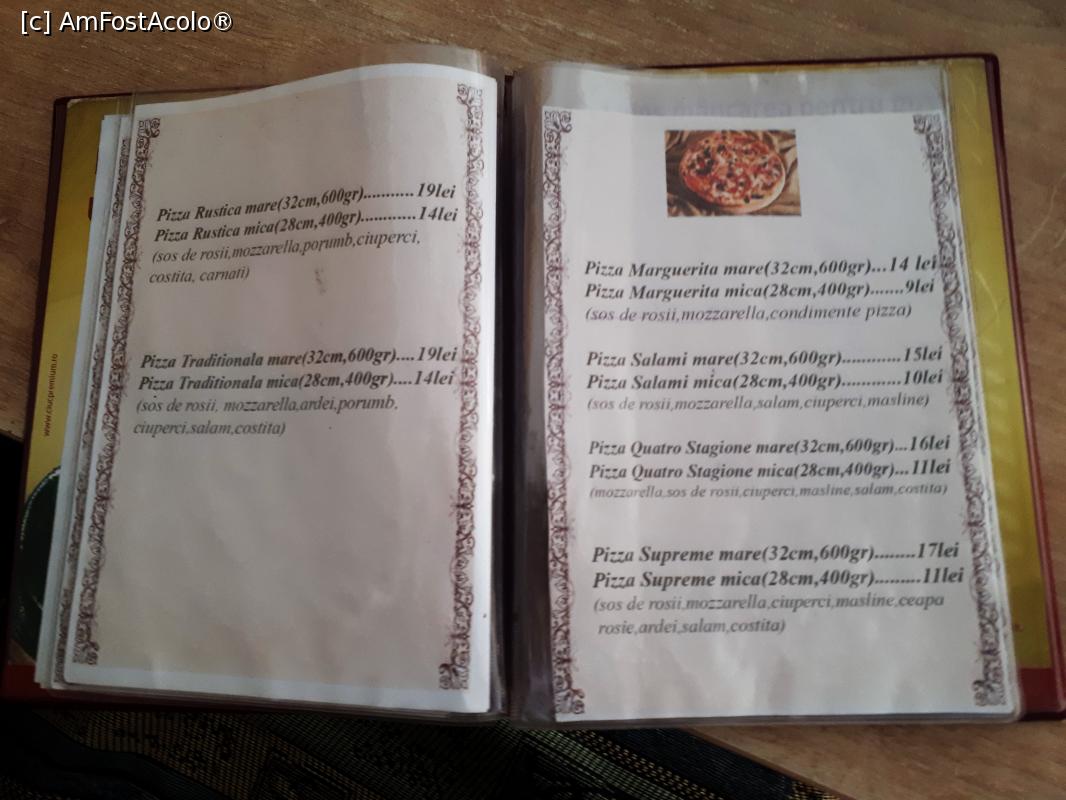 [c] AmFostAcolo®
Pizza Rustica mare(32cm,600gr)..........19lei
Pizza Rustica mica(28cm,400gr)...........14lei
(sos de rosii,mozzarella,porumb,ciuperci,
costita, carnati)
Pizza Traditionala mare(32cm,600gr)....19lei
Pizza Traditionala mica(28cm,400gr)....14lei
(sos de rosii, mozzarella,ardei,porumb,
ciuperci,salam,costita)
www.ciucpremium.ro
Pizza Marguerita mare(32cm,600gr)...14 lei
Pizza Marguerita mica(28cm,400gr).......9lei
(sos de rosii,mozzarella,condimente pizza)
Pizza Salami mare(32cm,600gr)............15lei
Pizza Salami mica(28cm,400gr)............10lei
(sos de rosii,mozzarella,salam,ciuperci,masline)
Pizza Quatro Stagione mare(32cm,600gr)...16lei
Pizza Quatro Stagione mica(28cm,400gr)...11lei
(mozzarella,sos de rosii,ciuperci,masline,salam,costita)
Pizza Supreme mare(32cm,600gr)........17lei
Pizza Supreme mica(28cm,400gr).........11lei
(sos de rosii,mozzarella,ciuperci,masline,ceapa
rosie,ardei,salam,costita)